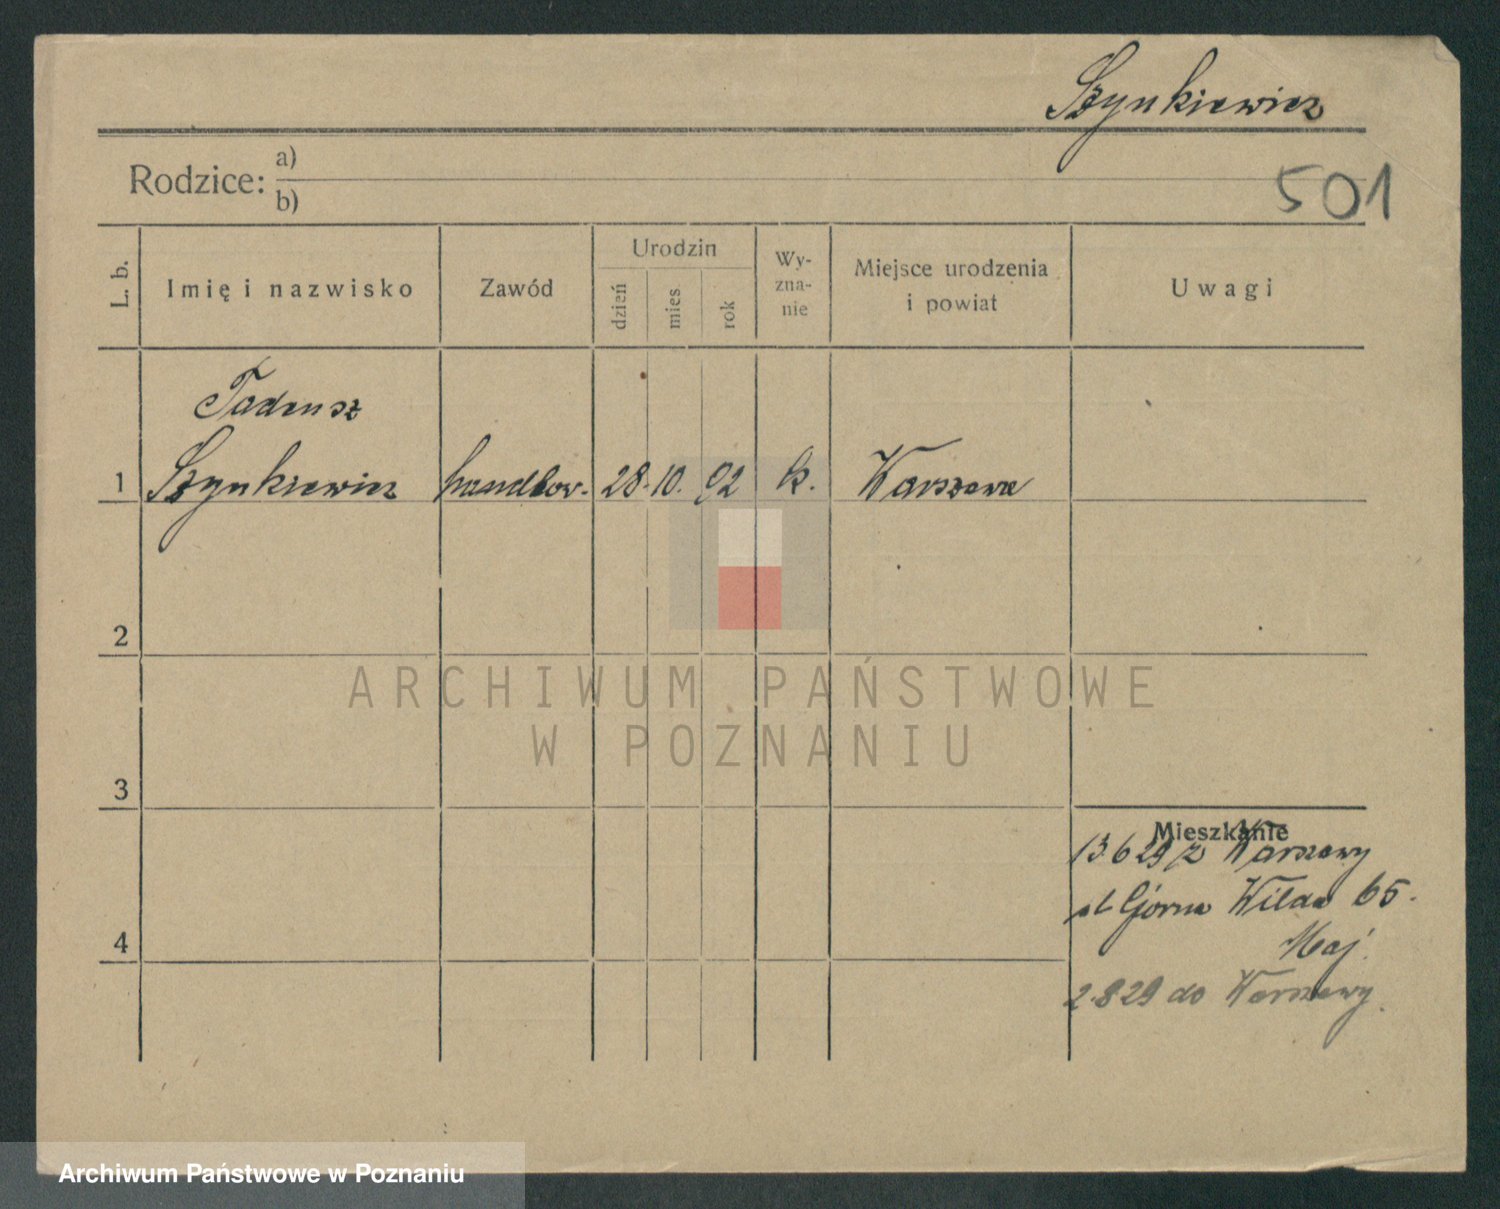 Szynkiewicz
Rodzice: a)
b)
501
L. b.
Imię i nazwisko
Zawód
Urodzin
dzień
mies
rok
Wy-
zna-
nie
Miejsce urodzenia
i powiat
Uwagi
Tadeusz
1 Szynkiewicz handlow. 28. 10. 92 k. Warszawa
2
ARCHIWUM PAŃSTWOWE
W POZNANIU
3
Mieszkanie
13.6 29 z Warszawy
Górna Wilda 65.
Maj.
4
2.8 29 do Warszawy
Archiwum Państwowe w Poznaniu